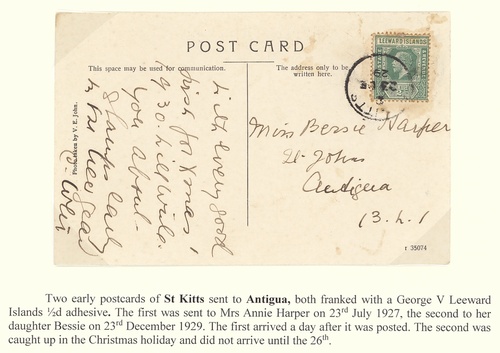 POST CARD
This space may be used for communication.
The address only to be
written here.
LEEWARD ISLANDS
Photo. taken by V. E. John.
With every good
wish for Xmas,
1930. Will write
you about
stamps early
in the New Year
Miss Bessie Harper
St. Johns
Antigua
B.W.I
r 35074
Two early postcards of St Kitts sent to Antigua, both franked with a George V Leeward
Islands ½d adhesive. The first was sent to Mrs Annie Harper on 23rd July 1927, the second to her
daughter Bessie on 23rd December 1929. The first arrived a day after it was posted. The second was
caught up in the Christmas holiday and did not arrive until the 26th.